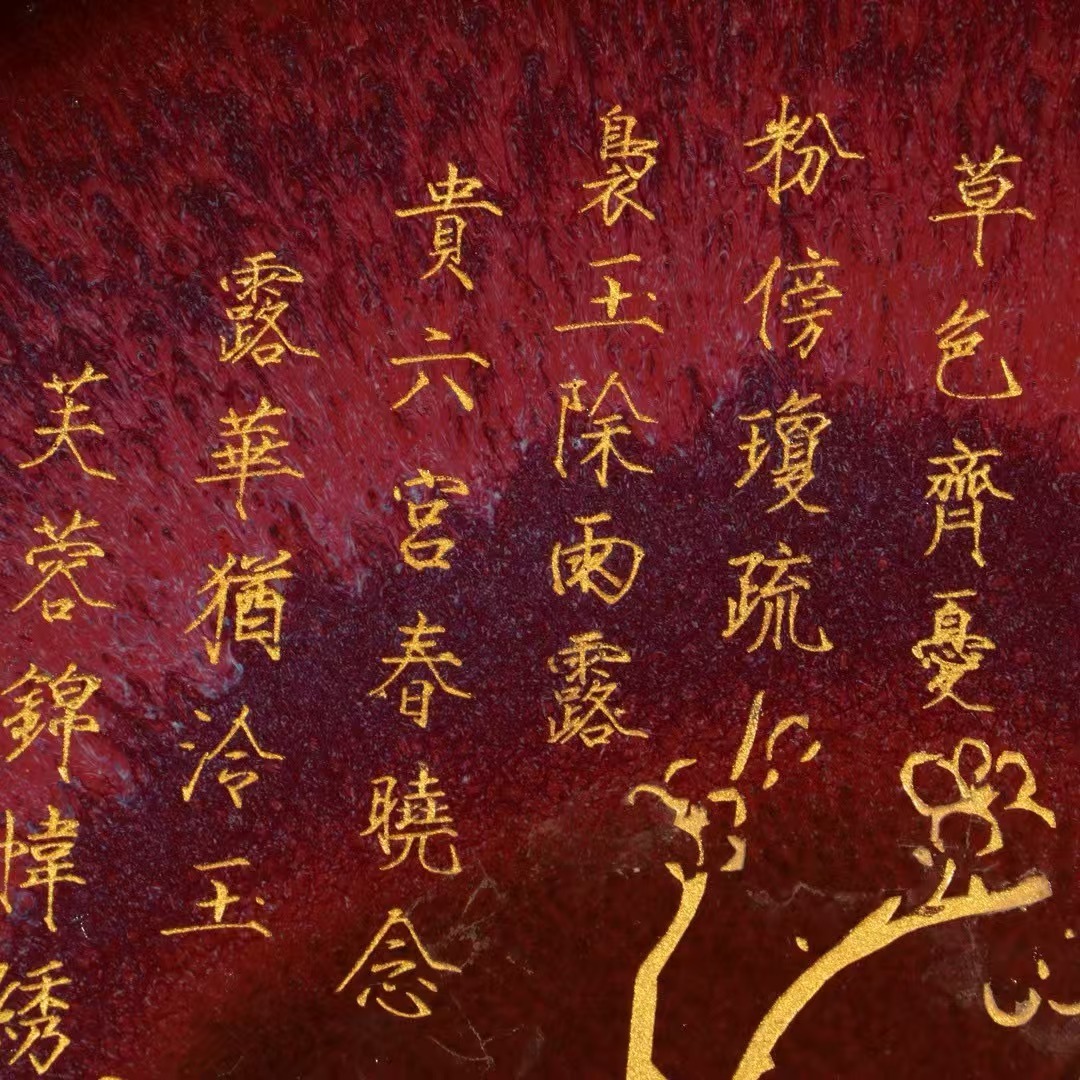 草色齊憂
粉傍瓊疏
裊玉除雨露
貴六宮春曉念
露華猶泠玉
芙蓉錦幃綉